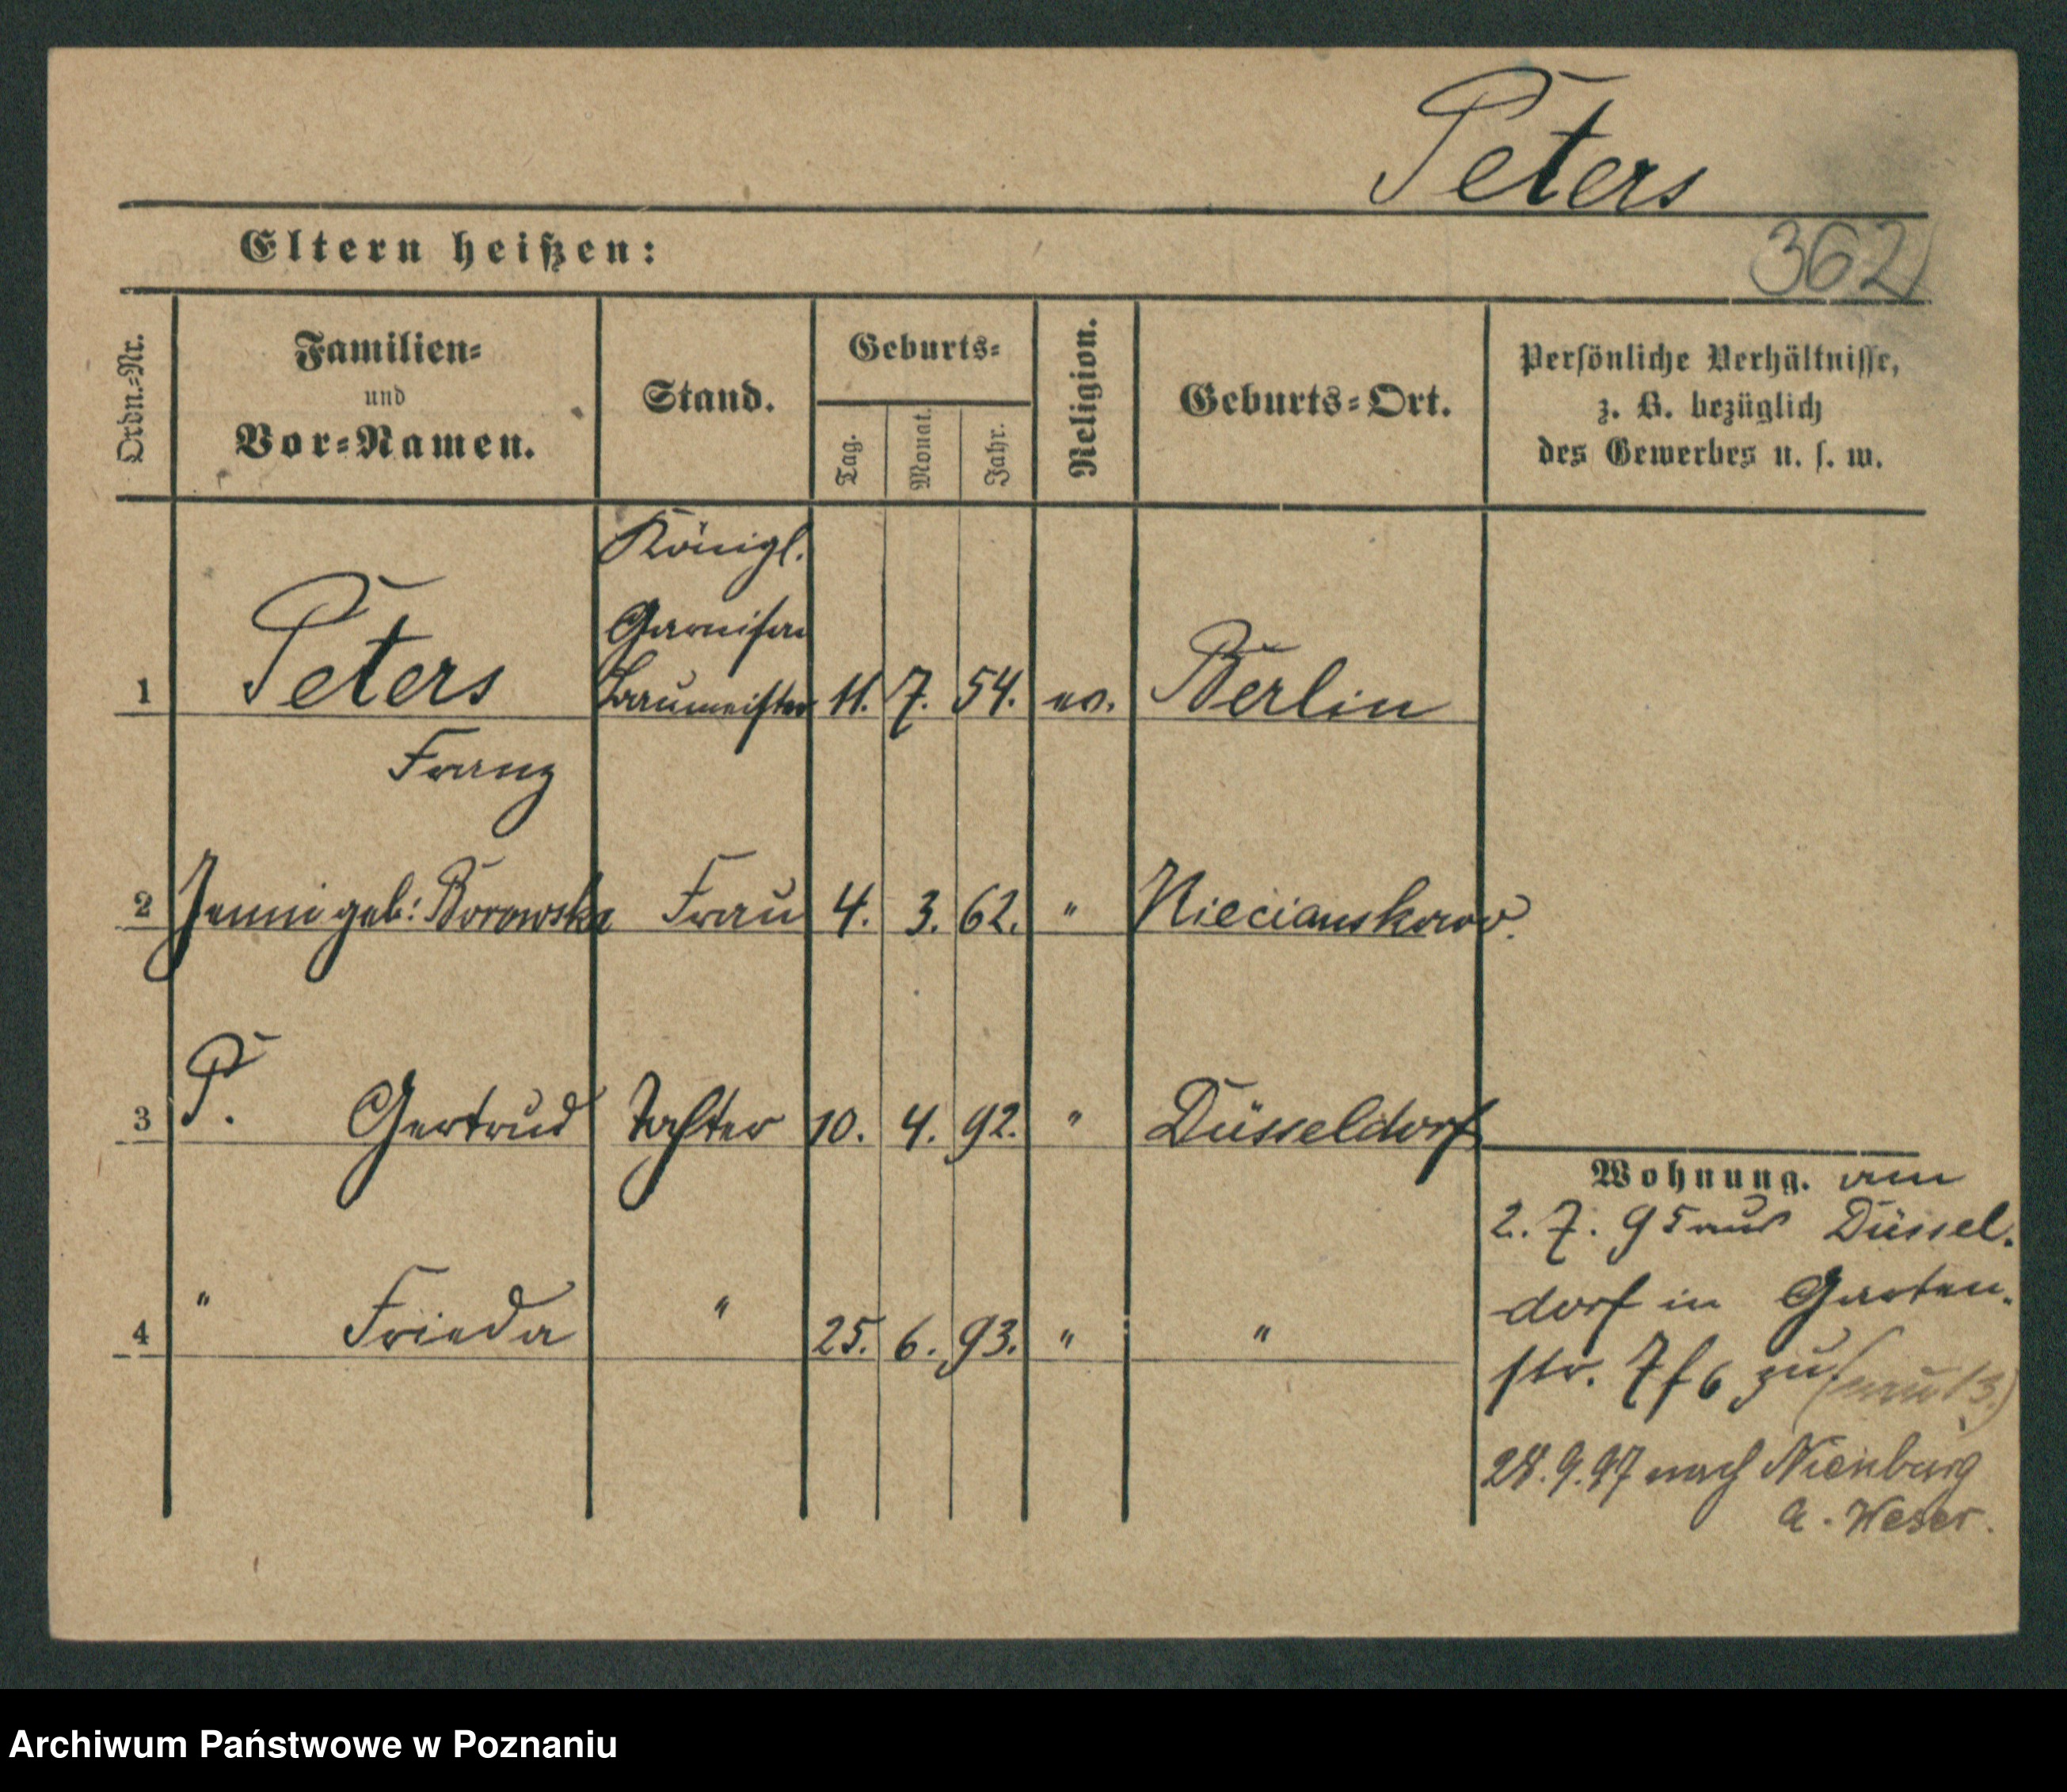 Peters
362
Eltern heißen:
Ordn.-Nr.
Familien-
und
Vor-Namen.
Stand.
Geburts-
Tag.
Monat.
Jahr.
Religion.
Geburts-Ort.
Persönliche Verhältnisse,
z. B. bezüglich
des Gewerbes u. s. w.
Königl.
Garnison
1 Peters Baumeister 11. 7. 54. ev. Berlin
Franz
2 Jenni geb: Borowska Frau 4. 3. 62. " Niecianskowo.
3 P. Gertrud Tochter 10. 4. 92. " Düsseldorf
4 " Frieda " 25. 6. 93. " "
Wohnung. am
2. 7. 95 aus Düssel-
dorf in Garten-
str. 7f6 zu (neu 13.)
28.9.97 nach Nienburg
a. Weser.
Archiwum Państwowe w Poznaniu